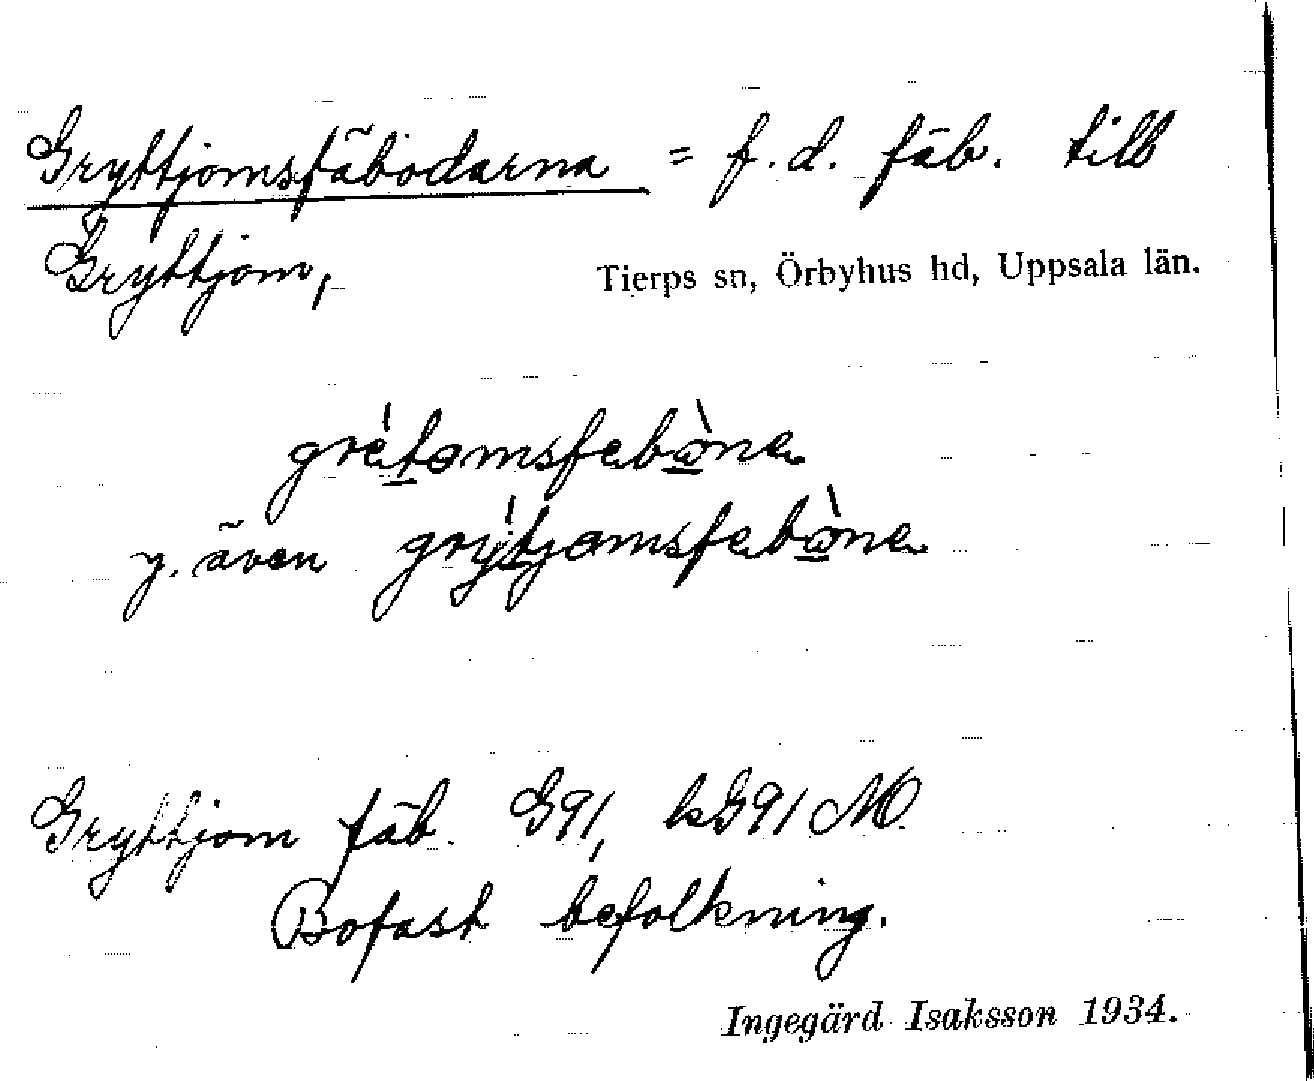 Gryttjomsfäbodarna = f.d. fäb. till
Gryttjom,
Tierps sn, Örbyhus hd, Uppsala län.
grètomsfebòne
y. även grỳtjomsfebòne
Gryttjom fäb. G91, kG91 M.
Bofast befolkning.
Ingegärd Isaksson 1934.